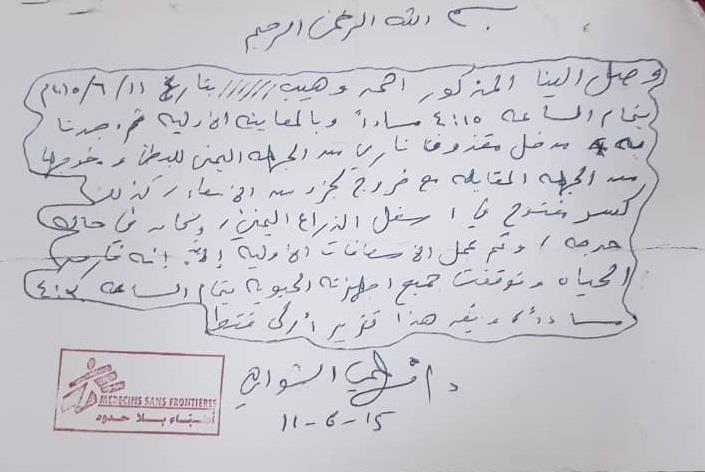 بسم الله الرحمن الرحيم
وصل إلينا المذكور احمد وهيب ////// بتاريخ ١١/٦/٢٠١٥م
بتمام الساعه ٤:١٥ مساءاً وبالمعاينه الأوليه تم وجدنا
به مدخل مقذوفا ناري من الجهه اليمنى للبطن و مخرجها
من الجهه المقابله مع خروج لجزء من الامعاء / كذلك
كسر مفتوح في اسفل الذراع اليمنى / وكان في حاله
حرجه / وتم عمل الاسعافات الأوليه إلا إنه فارق
الحياه وتوقفت جميع اجهزته الحيوية بتمام الساعه ٤:٣٠
مساءاً وهذا تقرير أولى فقط
د /
11-6-15
MEDECINS SANS FRONTIERES
أطباء بلا حدود